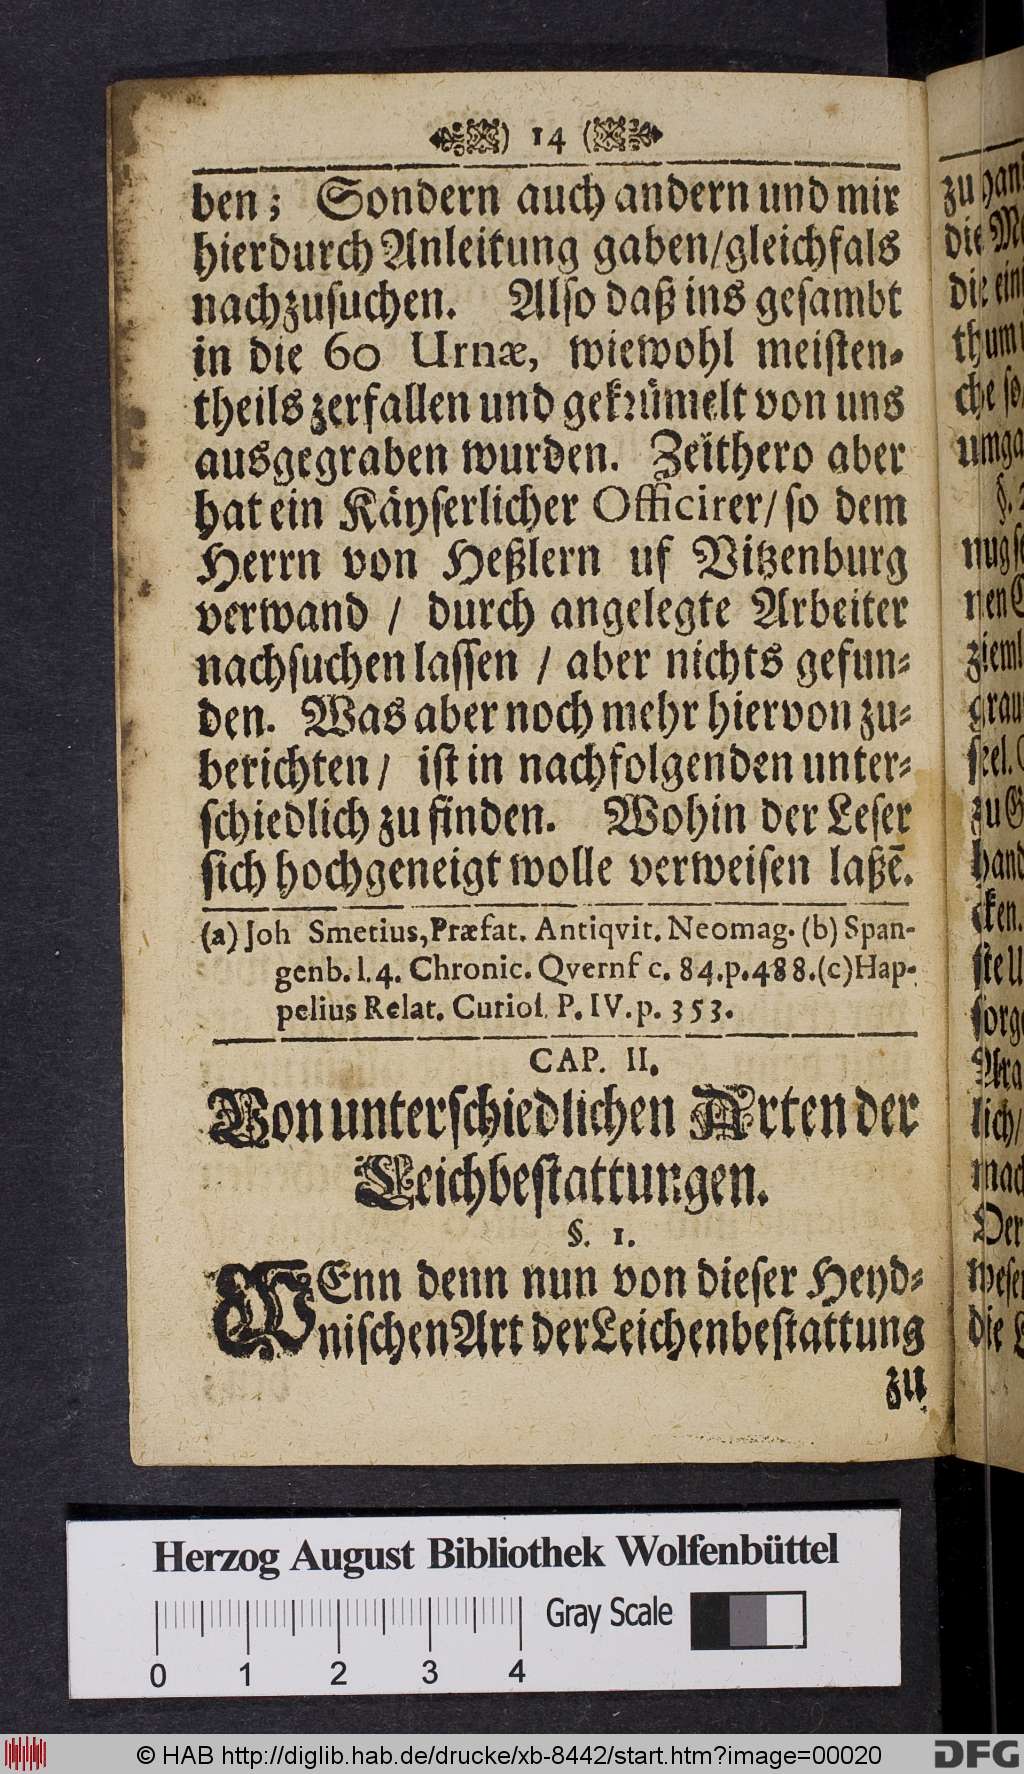 ) 14 (
ben; Sondern auch andern und mir
hierdurch Anleitung gaben/gleichfals
nachzusuchen. Also daß ins gesambt
in die 60 Urnæ, wiewohl meisten-
theils zerfallen und gekrümelt von uns
ausgegraben wurden. Zeithero aber
hat ein Käyserlicher Officirer/ so dem
Herrn von Heßlern uf Vitzenburg
verwand / durch angelegte Arbeiter
nachsuchen lassen / aber nichts gefun-
den. Was aber noch mehr hiervon zu-
berichten/ ist in nachfolgenden unter-
schiedlich zu finden. Wohin der Leser
sich hochgeneigt wolle verweisen laßē.
(a) Joh Smetius, Præfat. Antiqvit. Neomag. (b) Span-
genb. l. 4. Chronic. Qvernf c. 84. p. 488. (c) Hap-
pelius Relat. Curios. P. IV. p. 353.
CAP. II.
Von unterschiedlichen Arten der
Leichbestattungen.
§. 1.
WEnn denn nun von dieser Heyd-
nischen Art der Leichenbestattung
zu
zu
die
die
umga
§.
zu
hand
cken.
lich/
Der
die
Herzog August Bibliothek Wolfenbüttel
Gray Scale
0 1 2 3 4
© HAB http://diglib.hab.de/drucke/xb-8442/start.htm?image=00020
DFG